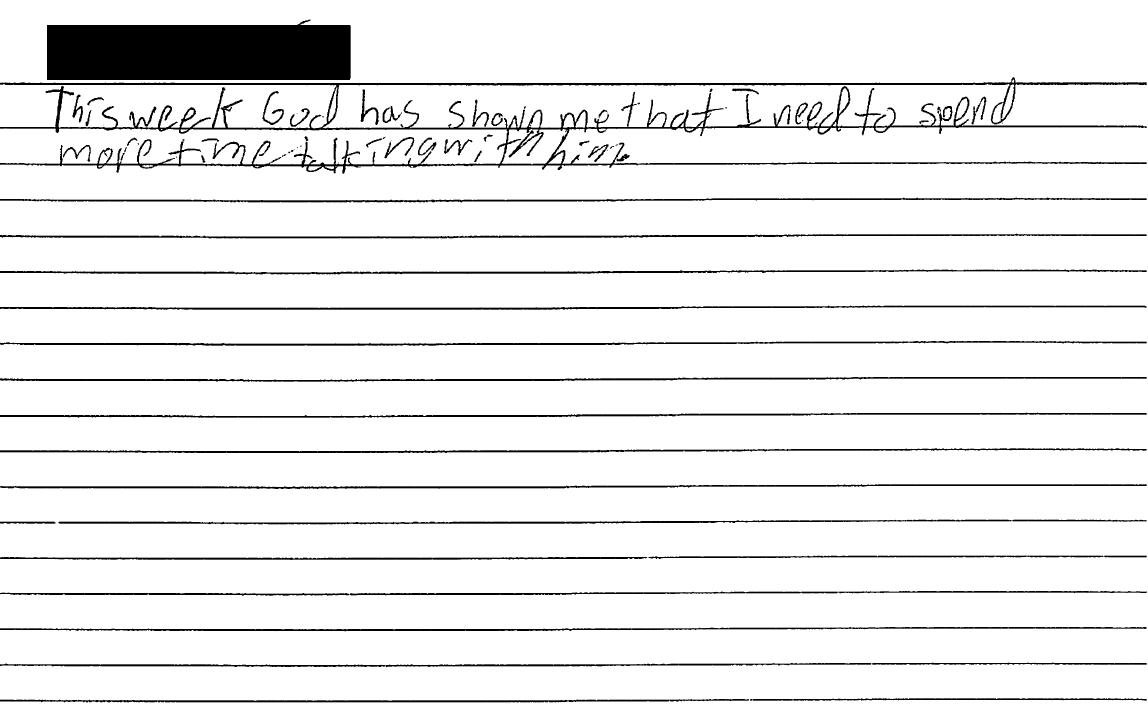 This week God has shown me that I need to spend
more time talking with him.